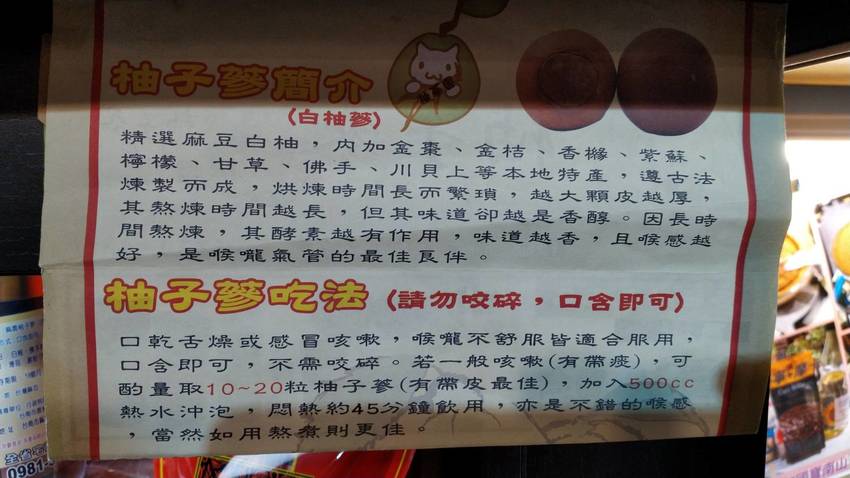 柚子蔘簡介
(白柚蔘)
精選麻豆白柚，內加金棗、金桔、香櫞、紫蘇、
檸檬、甘草、佛手、川貝上等本地特產，遵古法
煉製而成，烘煉時間長而繁瑣，越大顆皮越厚，
其熬煉時間越長，但其味道卻越是香醇。因長時
間熬煉，其酵素越有作用，味道越香，且喉感越
好，是喉嚨氣管的最佳良伴。
柚子蔘吃法 (請勿咬碎，口含即可)
口乾舌燥或感冒咳嗽，喉嚨不舒服皆適合服用，
口含即可，不需咬碎。若一般咳嗽(有帶痰)，可
酌量取10~20粒柚子蔘(有帶皮最佳)，加入500cc
熱水沖泡，悶熱約45分鐘飲用，亦是不錯的喉感
，當然如用熬煮則更佳。
0981